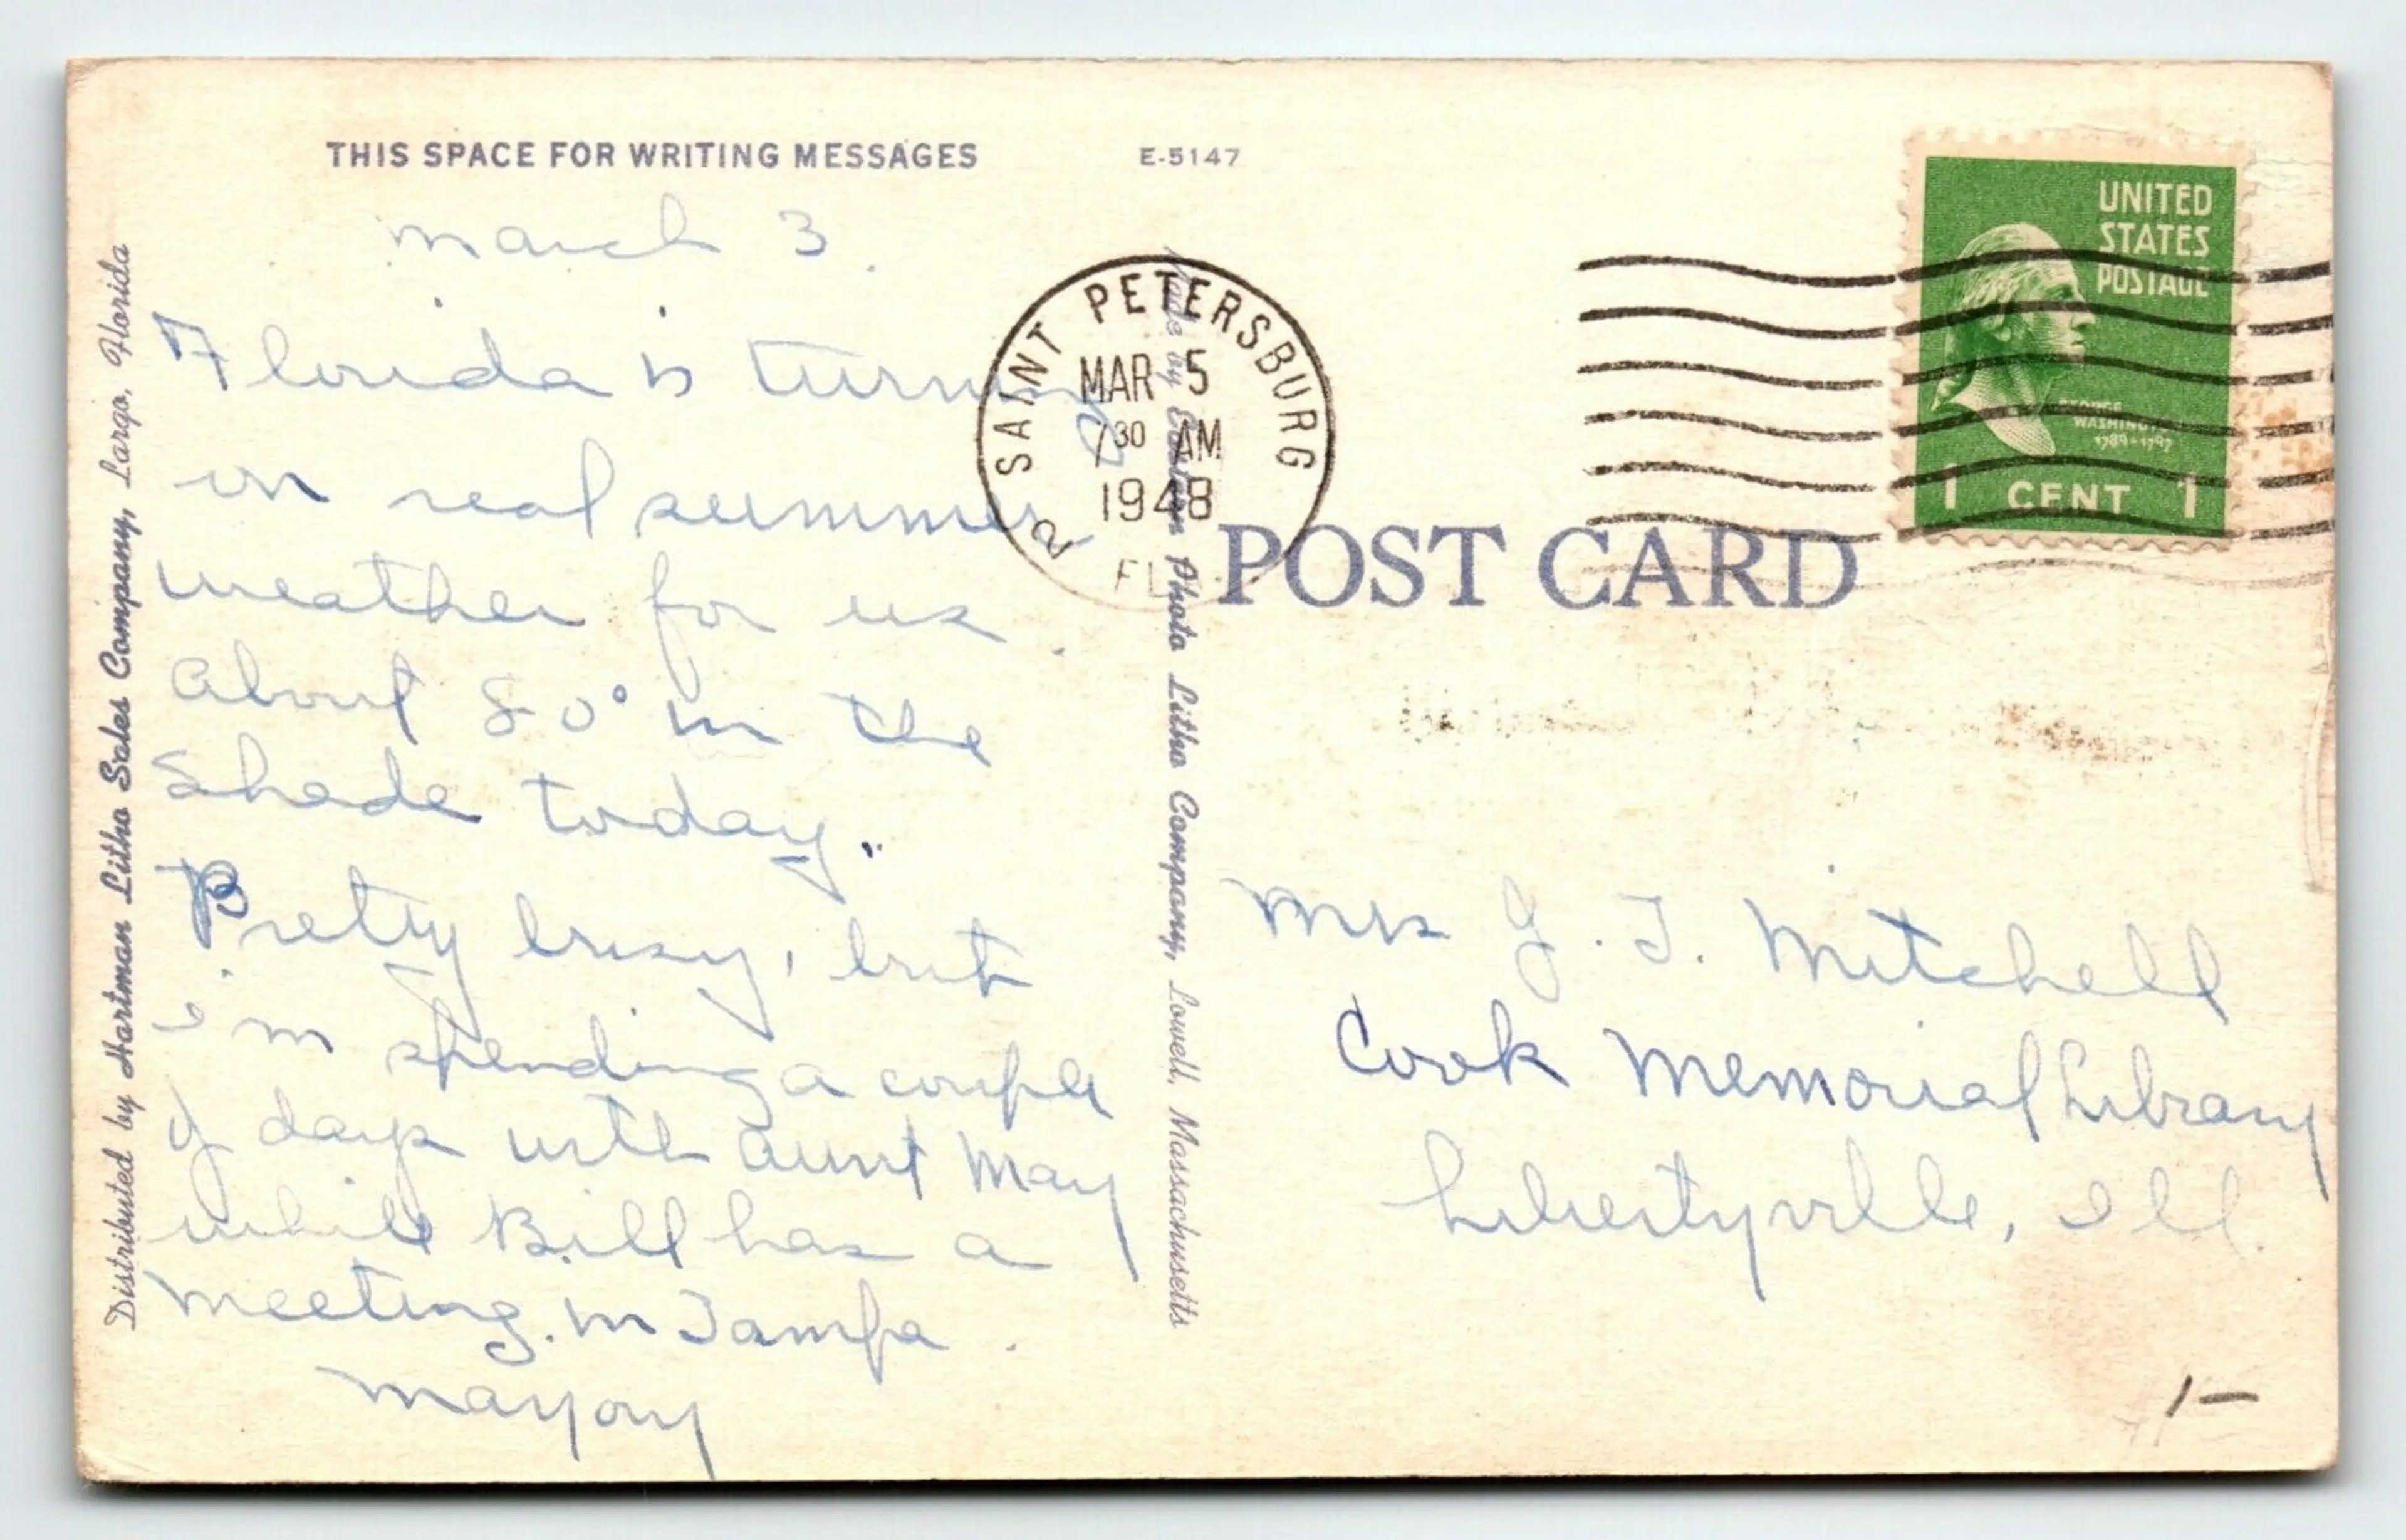 THIS SPACE FOR WRITING MESSAGES
E-5147
March 3.
Florida is turning
on real summer
weather for us.
About 80° in the
Shade today.
Pretty busy, but
I'm spending a couple
of days with Aunt May
while Bill has a
meeting in Tampa.
Distributed by Hartman Litho Sales Company, Largo, Florida
Made by Eastern Photo Litho Company, Lowell, Massachusetts
SAINT PETERSBURG
MAR 5
7 30 AM
1948
2
FLA
UNITED
STATES
POSTAGE
GEORGE
WASHINGTON
1789-1797
1 CENT 1
POST CARD
Mrs J. T. Mitchell
Cook Memorial Library
Libertyville, Ill.
1-